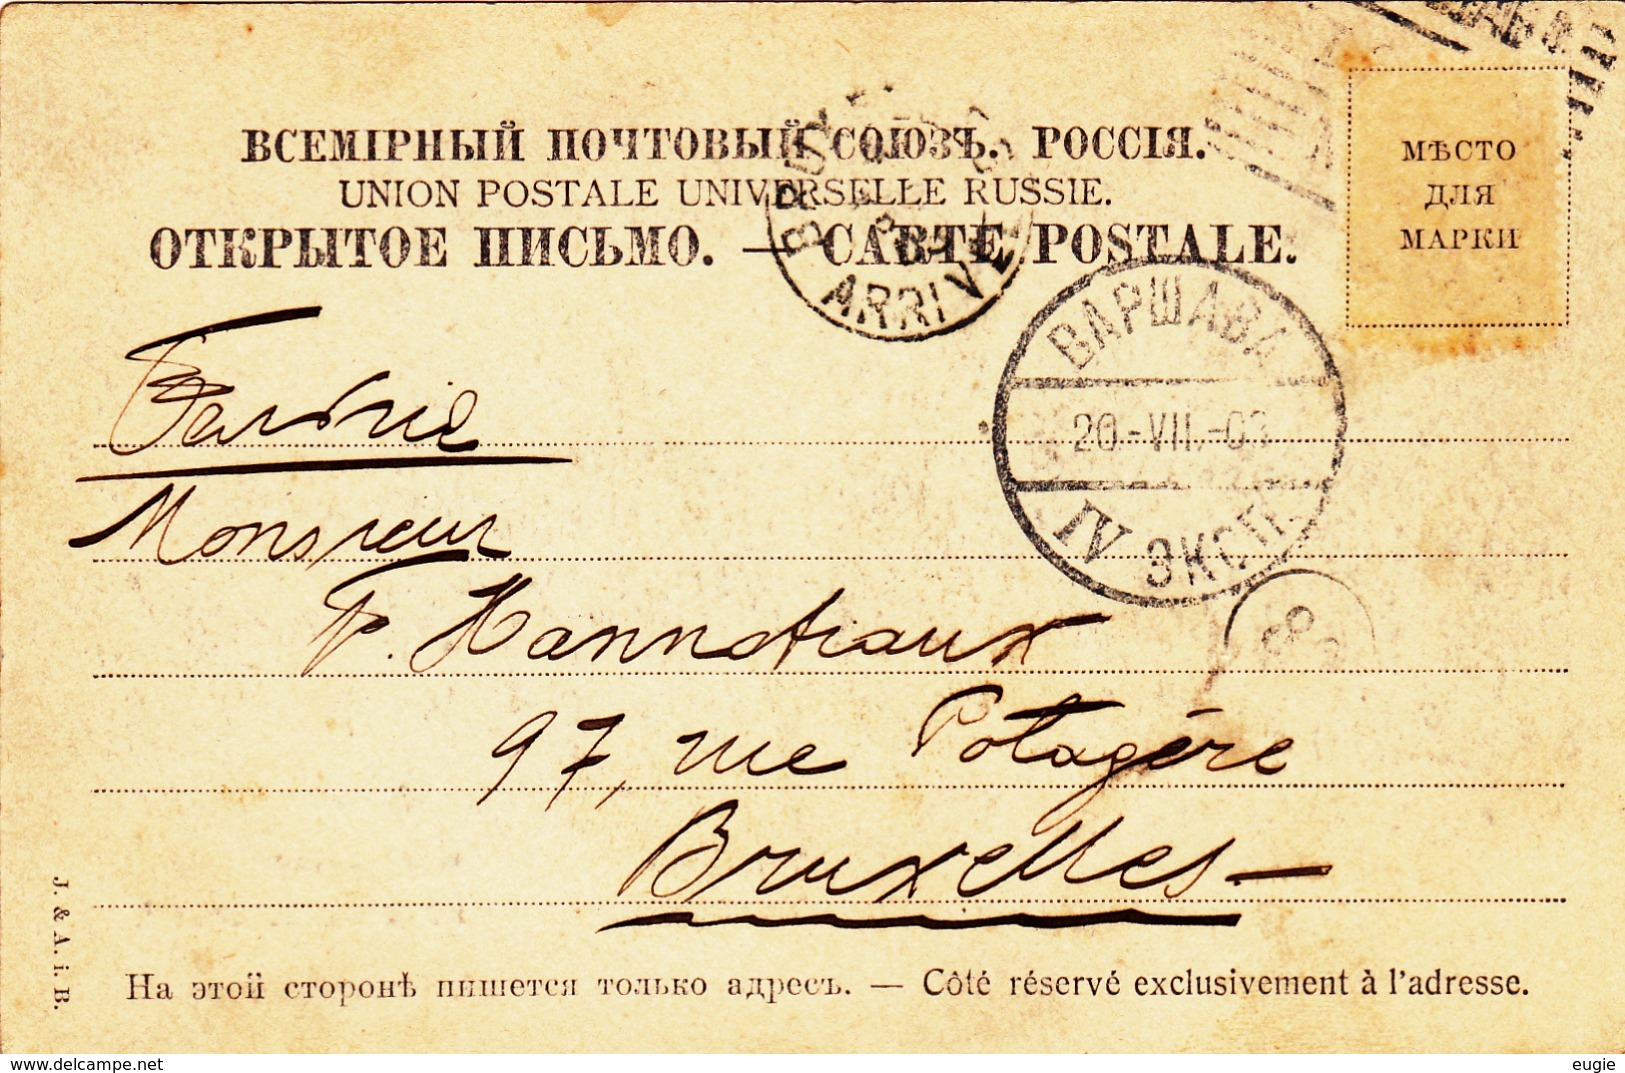 ВСЕМІРНЫЙ ПОЧТОВЫЙ СОЮЗЪ. РОССІЯ.
UNION POSTALE UNIVERSELLE RUSSIE.
ОТКРЫТОЕ ПИСЬМО. — CARTE POSTALE.
МѢСТО
ДЛЯ
МАРКИ
ARRIVE
ВАРШАВА
20.-VII.-03
IV ЭКСП.
Monsieur
P. Hannotiaux
97, rue Potagère
Bruxelles —
J. & A. i. B.
На этой сторонѣ пишется только адресъ. — Côté réservé exclusivement à l'adresse.
https://www.delcampe.net
eugie